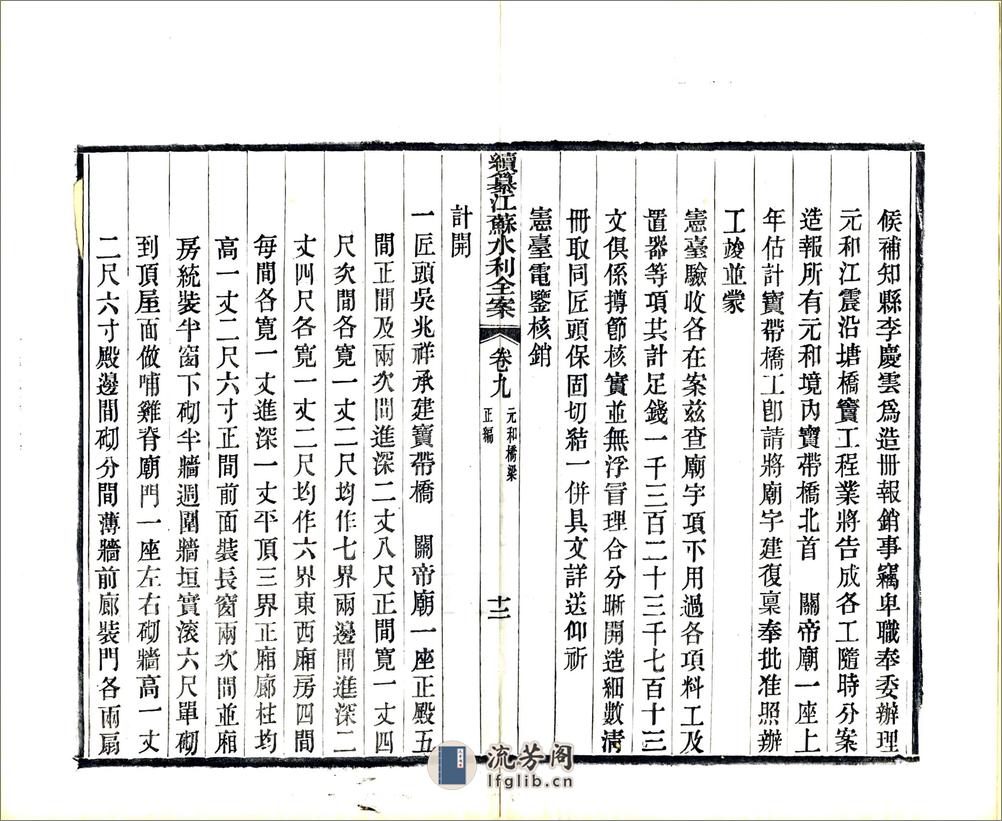 候補知縣李慶雲爲造冊報銷事竊卑職奉委辦理
元和江震沿塘橋竇工程業將告成各工隨時分案
造報所有元和境內寶帶橋北首　關帝廟一座上
年估計寶帶橋工卽請將廟宇建復稟奉批准照辦
工竣並蒙
憲臺驗收各在案茲查廟宇項下用過各項料工及
置器等項共計足錢一千三百二十三千七百十三
文俱係撙節核實並無浮冒理合分晰開造細數淸
冊取同匠頭保固切結一併具文詳送仰祈
憲臺電鑒核銷
計開
續纂江蘇水利全案
卷九
元和橋梁
正編
十二
一匠頭吳兆祥承建寶帶橋　關帝廟一座正殿五
間正間及兩次間進深二丈八尺正間寬一丈四
尺次間各寬一丈二尺均作七界兩邊間進深二
丈四尺各寬一丈二尺均作六界東西廂房四間
每間各寬一丈進深一丈平頂三界正廂廊柱均
高一丈二尺六寸正間前面裝長窗兩次間並廂
房統裝半窗下砌半牆週圍牆垣實滾六尺單砌
到頂屋面做哺雞脊廟門一座左右砌牆高一丈
二尺六寸殿邊間砌分間薄牆前廊裝門各兩扇
流芳阁
lfglib.cn